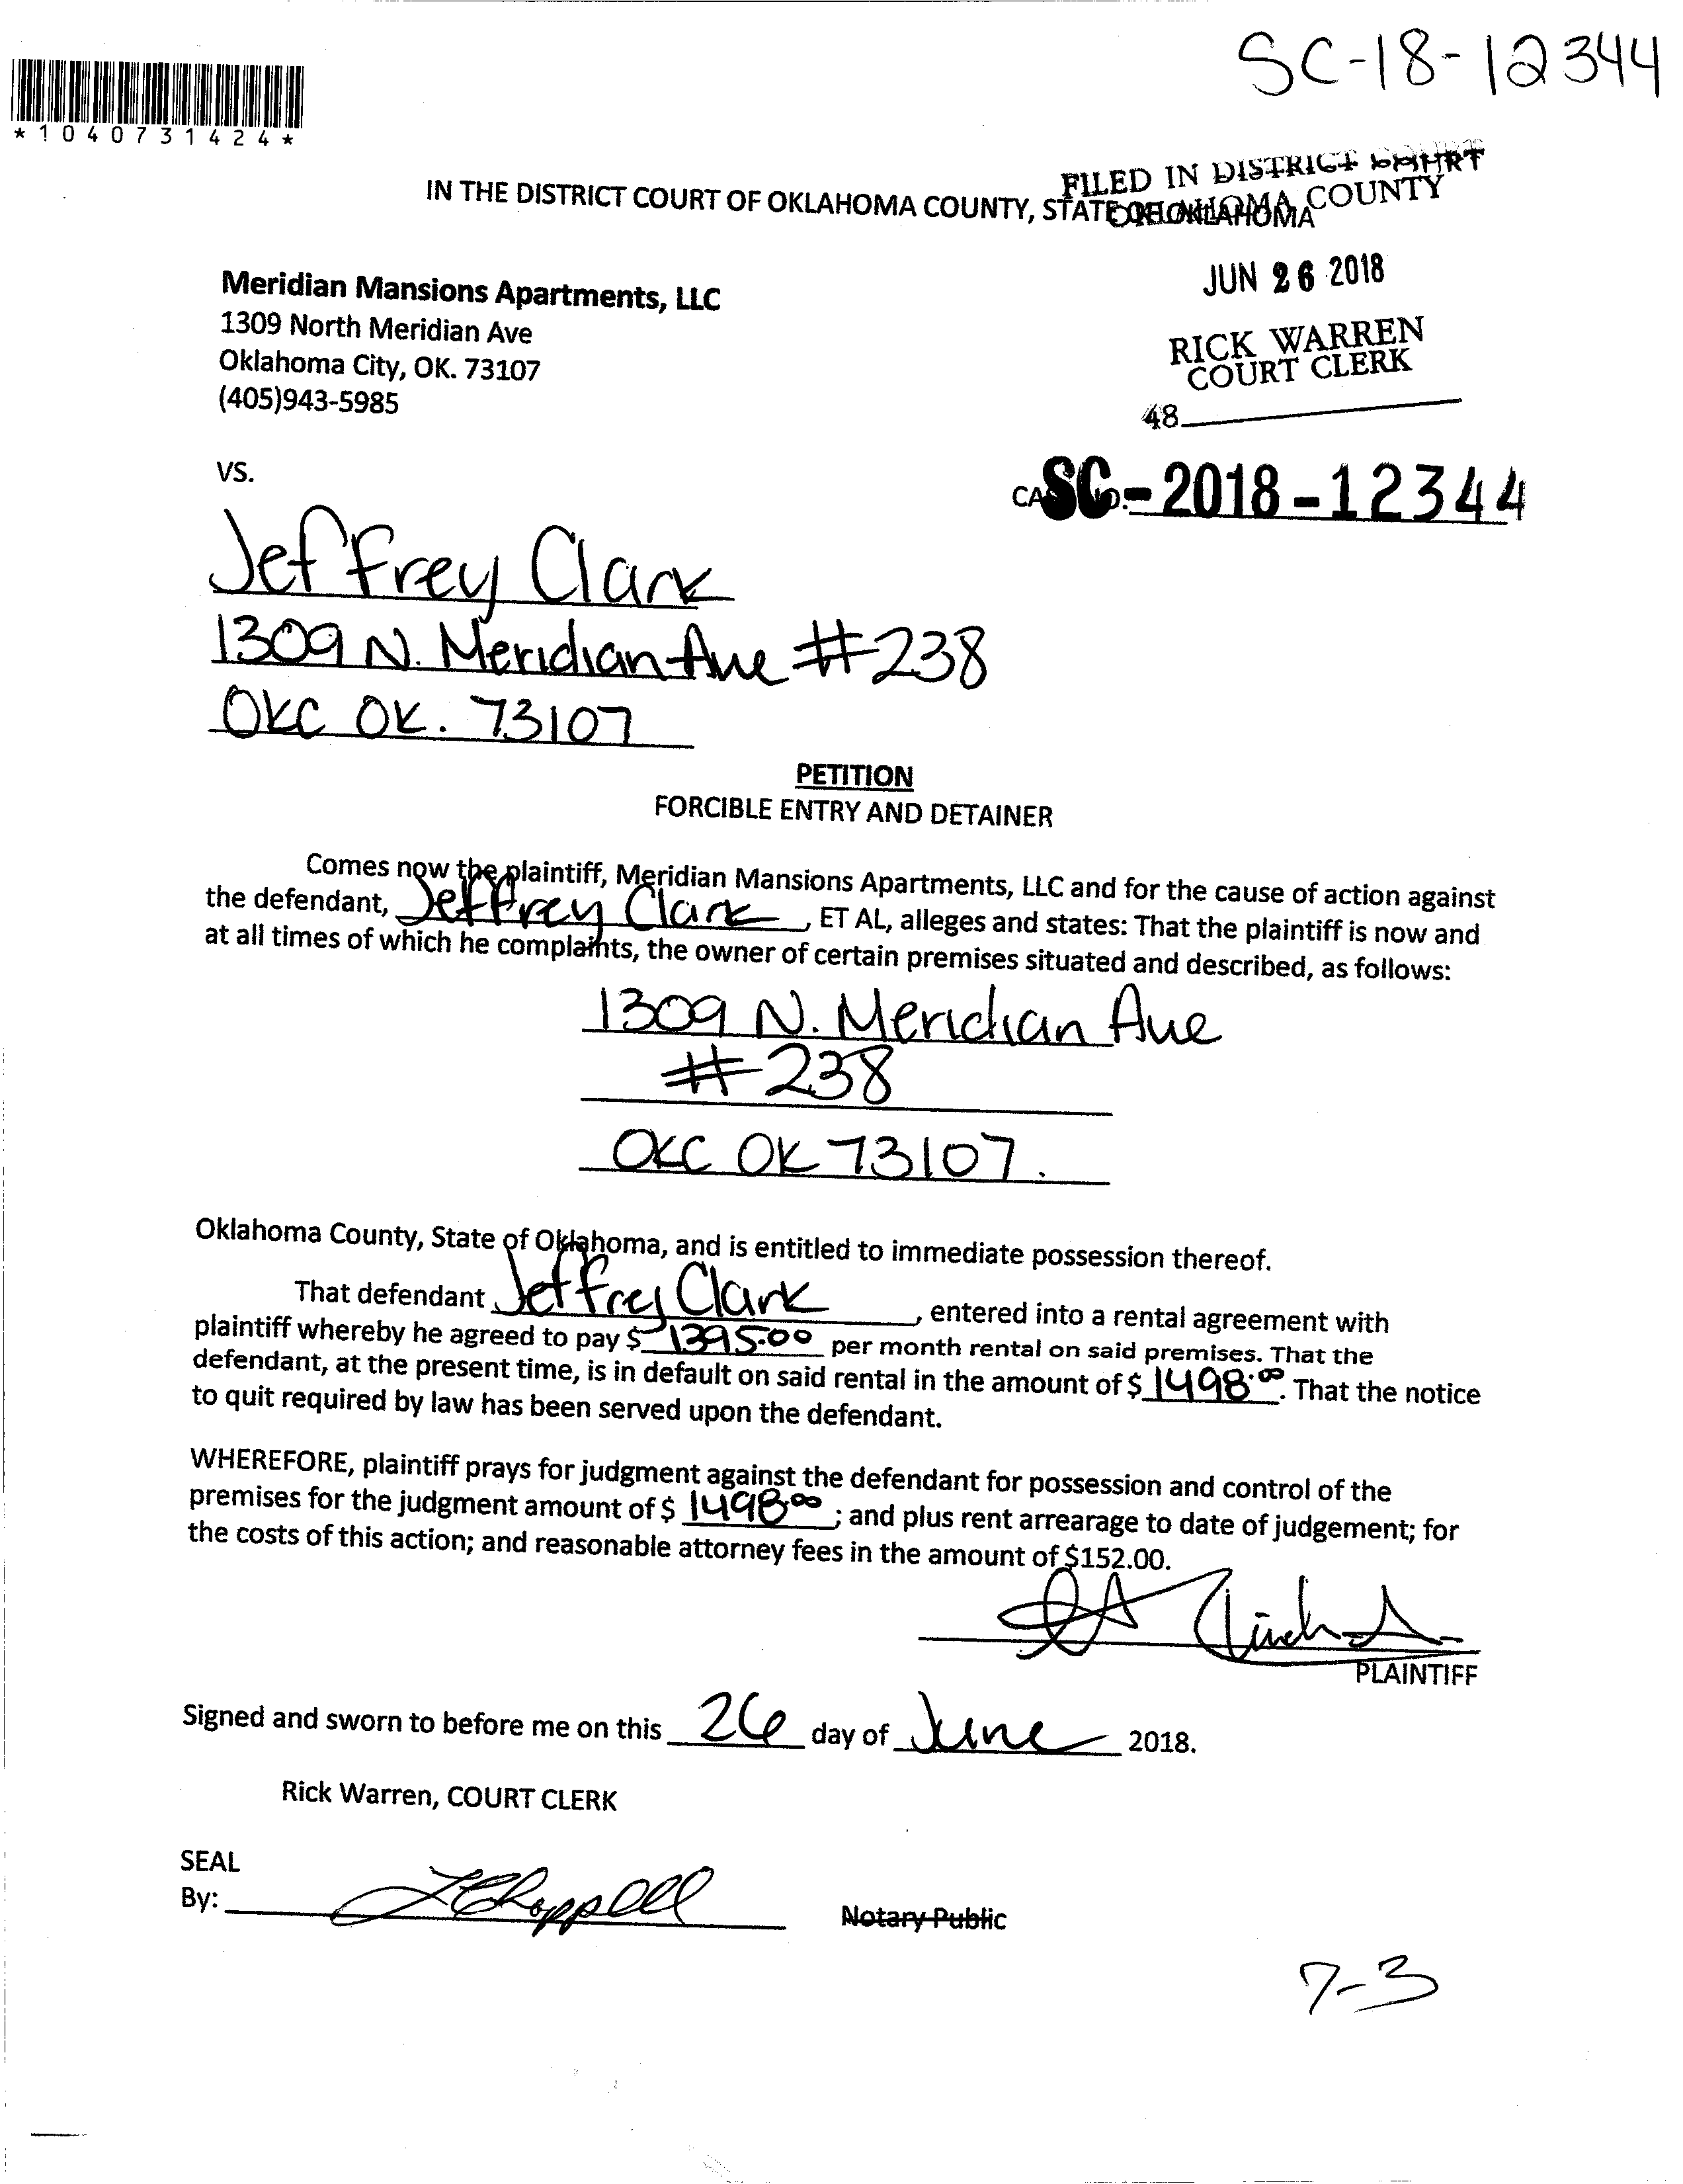 SC-18-12344
*1040731424*
FILED IN DISTRICT COURT
OKLAHOMA COUNTY
IN THE DISTRICT COURT OF OKLAHOMA COUNTY, STATE OF OKLAHOMA
JUN 26 2018
RICK WARREN
COURT CLERK
48
Meridian Mansions Apartments, LLC
1309 North Meridian Ave
Oklahoma City, OK. 73107
(405)943-5985
VS.
SC-2018-12344
Jeffrey Clark
1309 N. Meridian Ave #238
OKC OK. 73107
PETITION
FORCIBLE ENTRY AND DETAINER
Comes now the plaintiff, Meridian Mansions Apartments, LLC and for the cause of action against
the defendant, Jeffrey Clark, ET AL, alleges and states: That the plaintiff is now and
at all times of which he complaints, the owner of certain premises situated and described, as follows:
1309 N. Meridian Ave
#238
OKC OK 73107.
Oklahoma County, State of Oklahoma, and is entitled to immediate possession thereof.
That defendant Jeffrey Clark, entered into a rental agreement with
plaintiff whereby he agreed to pay $ 1395.00 per month rental on said premises. That the
defendant, at the present time, is in default on said rental in the amount of $ 1498.00. That the notice
to quit required by law has been served upon the defendant.
WHEREFORE, plaintiff prays for judgment against the defendant for possession and control of the
premises for the judgment amount of $ 1498.00; and plus rent arrearage to date of judgement; for
the costs of this action; and reasonable attorney fees in the amount of $152.00.
PLAINTIFF
Signed and sworn to before me on this 26 day of June 2018.
Rick Warren, COURT CLERK
SEAL
By: L Chappell
Notary Public
7-3